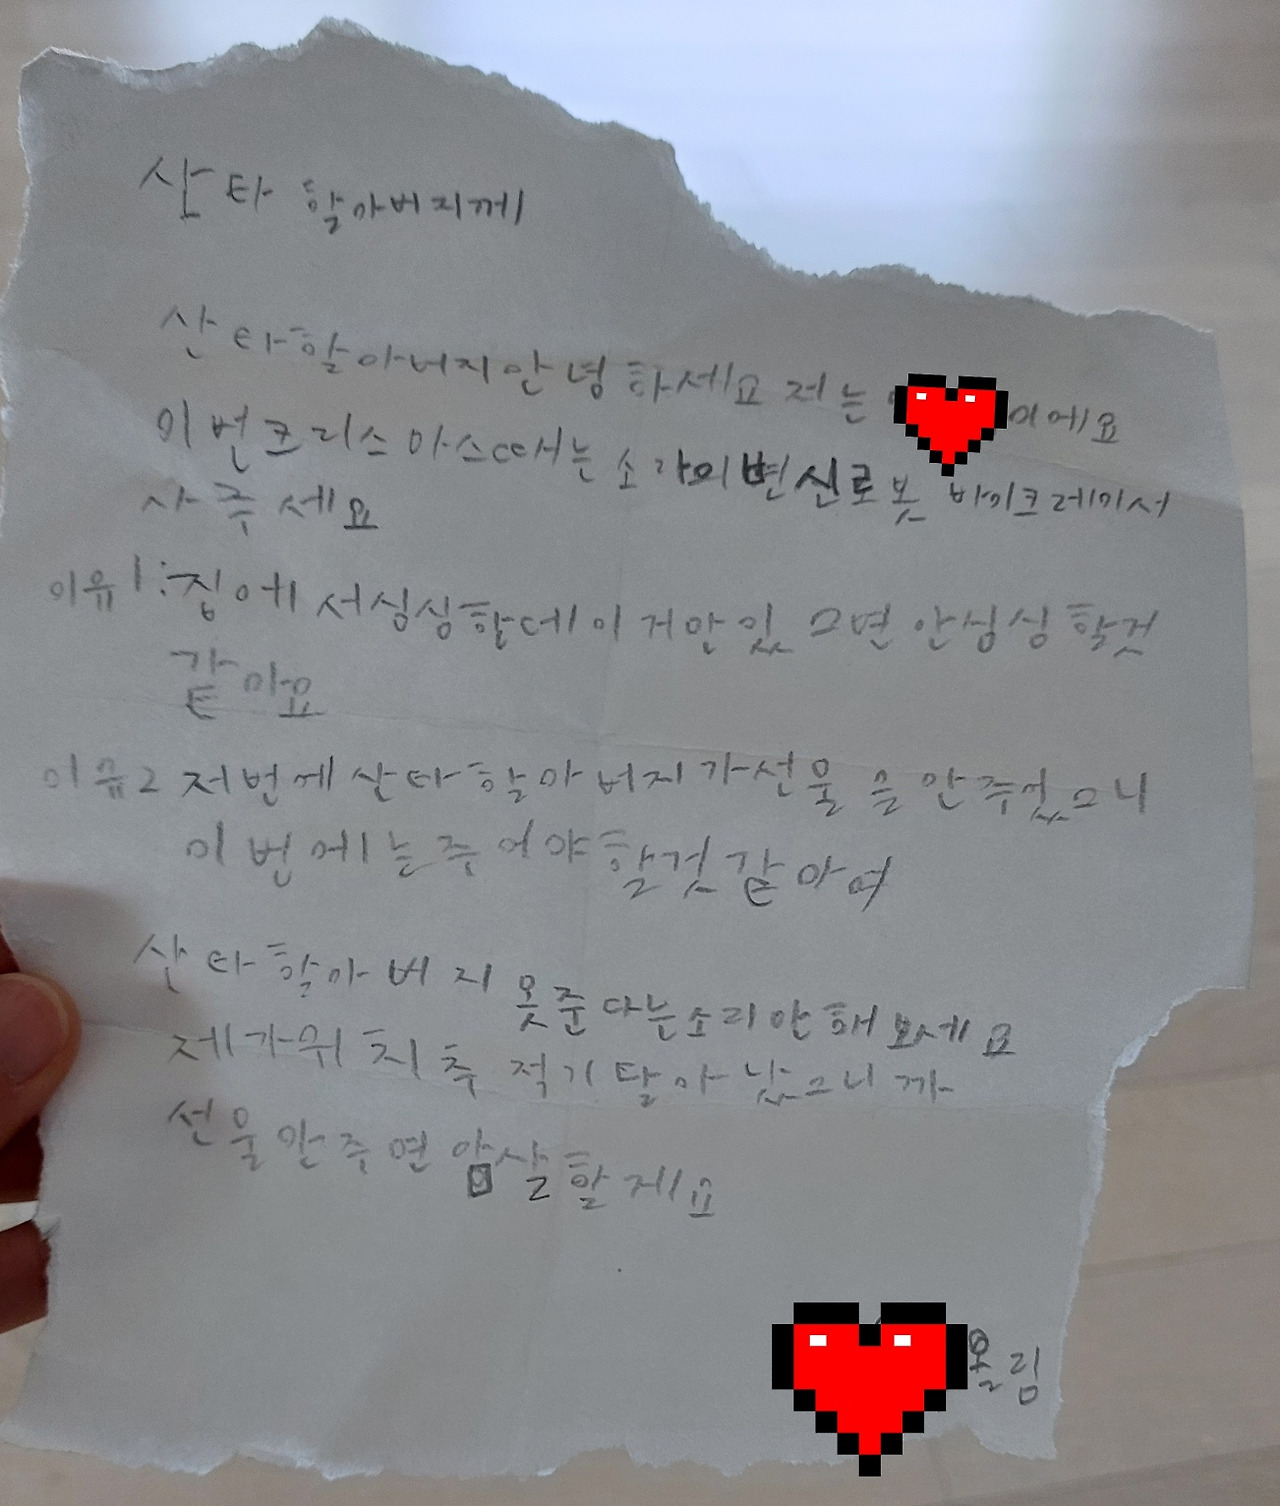 산타 할아버지께
산타할아버지안녕하세요 저는 이에요
이번크리스마스때는 소라의변신로봇 바이크레이서
사주세요
이유1:집에서심심한데이거만있으면 안심심할것
같아요
이유2 저번에산타할아버지가선물을안주셨으니
이번에는주어야할것같아여
산타할아버지 못준다는소리안해보세요
제가위치추적기달아놨으니까
선물안주면암살할게요
올림